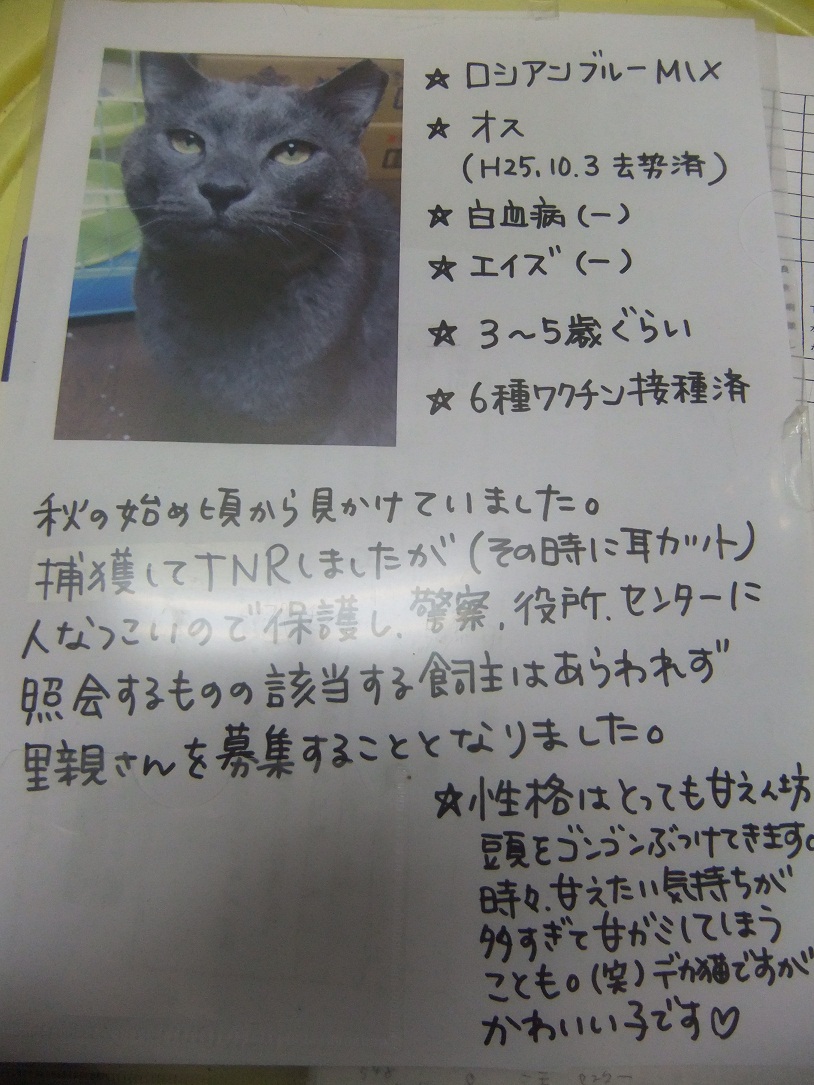 ☆ ロシアンブルーMIX
☆ オス
(H25.10.3 去勢済)
☆ 白血病(ー)
☆ エイズ(ー)
☆ 3〜5歳ぐらい
☆ 6種ワクチン接種済
秋の始め頃から見かけていました。
捕獲してTNRしましたが(その時に耳カット)
人なつこいので保護し、警察、役所、センターに
照会するものの該当する飼主はあらわれず
里親さんを募集することとなりました。
☆性格はとっても甘えん坊
頭をゴンゴンぶつけてきます。
時々、甘えたい気持ちが
多すぎて甘がミしてしまう
ことも。(笑)デカ猫ですが
かわいい子です♡